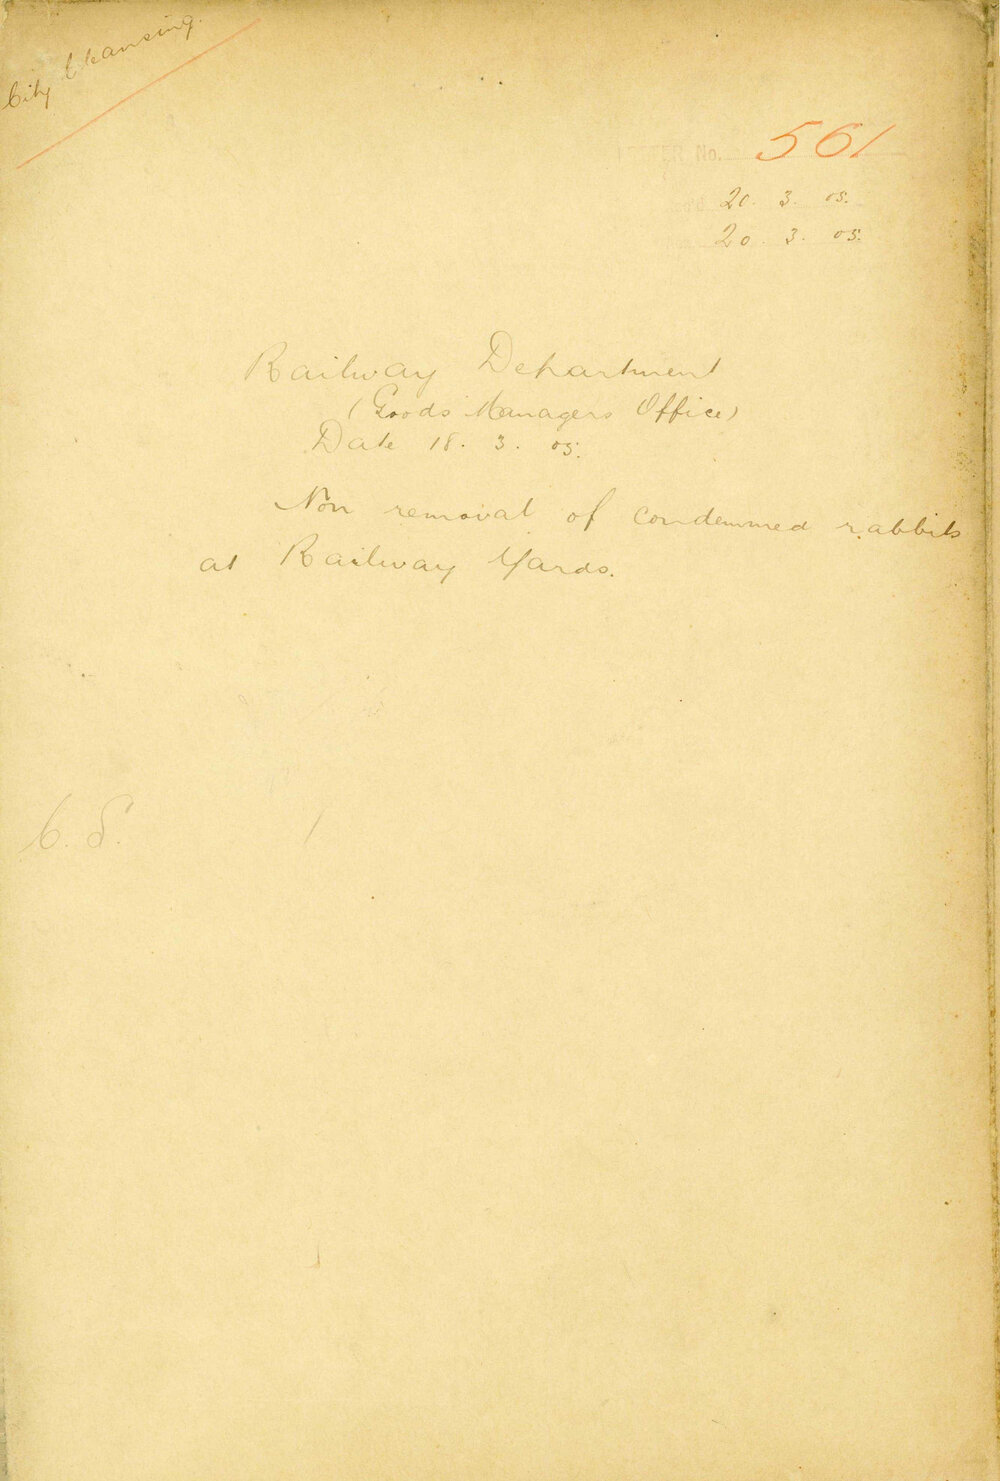 City Cleansing.
LETTER No. 561
20. 3. 05.
20. 3. 05.
Railway Department
(Goods Managers Office)
Date 18. 3. 05.
Non removal of condemmed rabbits
at Railway Yards.
C. S.